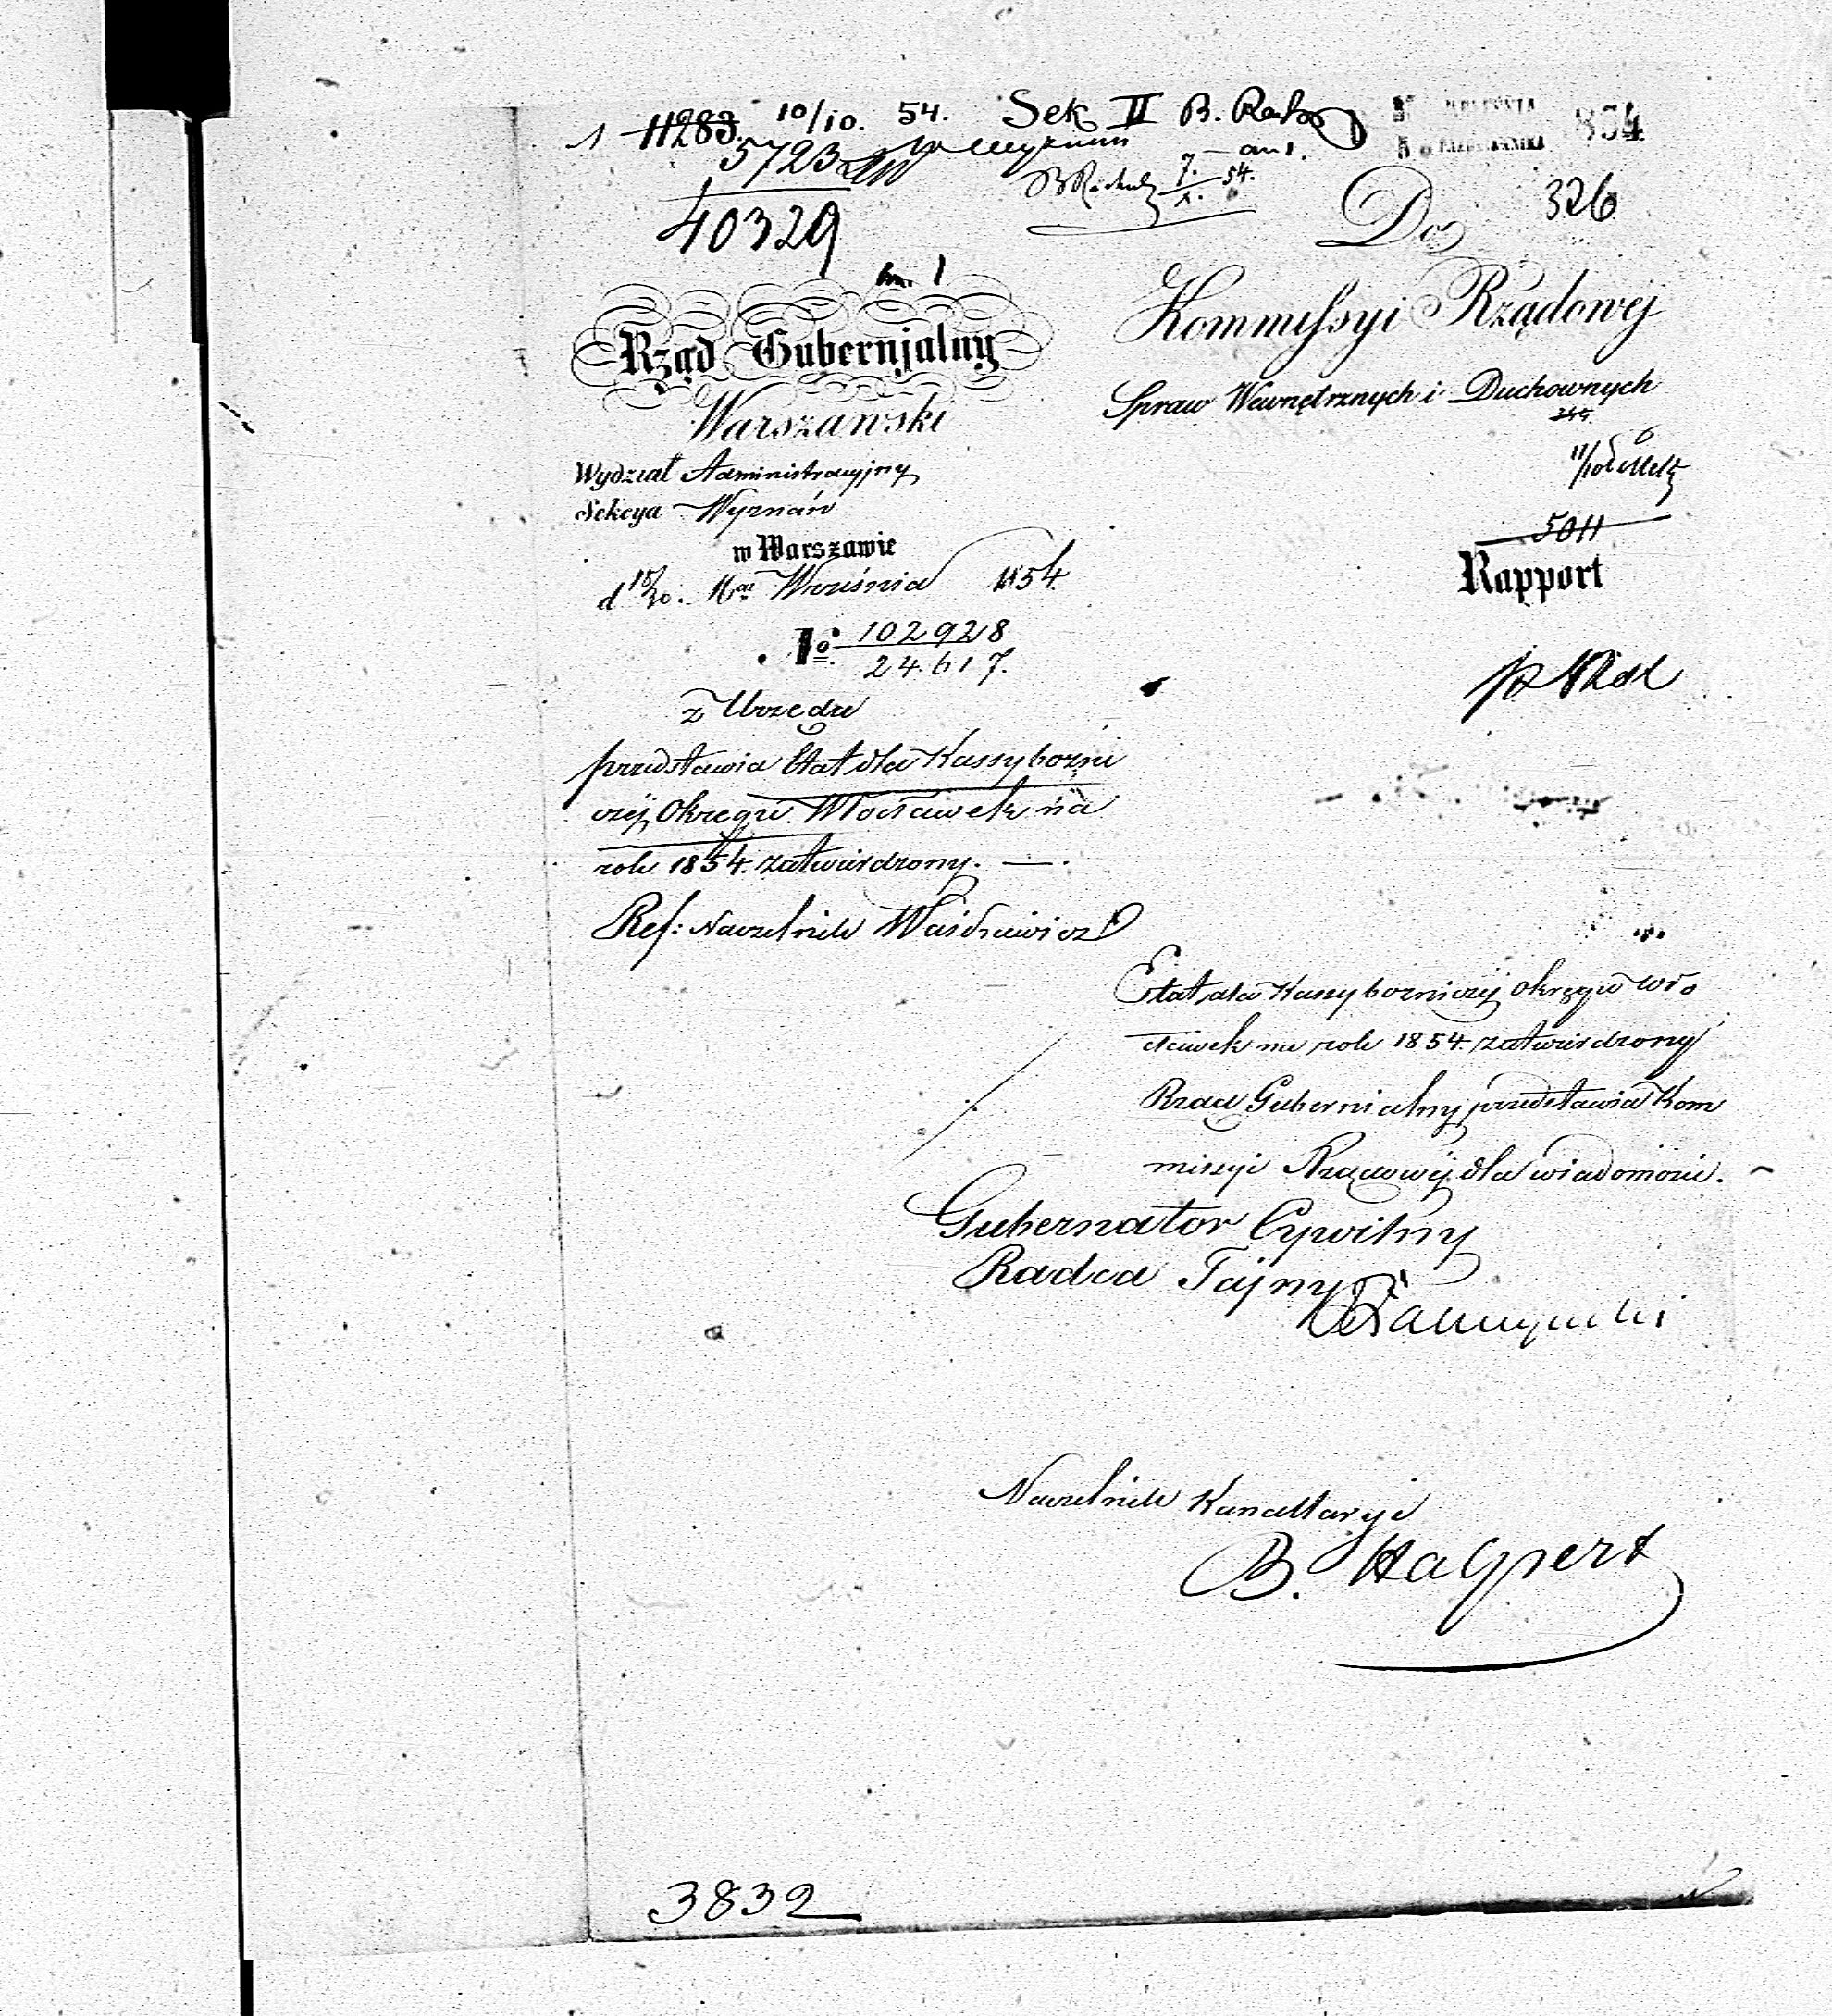 1 11283. 10/10. 54. Sek II B.
5723
40329
326
Do
Kommissyi Rządowej
Spraw Wewnętrznych i Duchownych
5011
Rapport
Rząd Gubernjalny
Warszawski
Wydział Administracyjny
Sekcya Wyznań
w Warszawie
d 18/30. Września 1854
No 102928
24617.
z Urzędu
przedstawia Etat dla Kassy bożni
czej Okręgu Włocławek na
rok 1854. zatwierdzony. —.
Ref: Naczelnik
Etat dla Kassy bożniczej okręgu Wło
cławek na rok 1854. zatwierdzony
Rząd Gubernialny przedstawia Kom
missyi Rządowej dla wiadomości.
Gubernator Cywilny
Radca Tajny
Naczelnik Kancellaryi
B. Halpert
3832